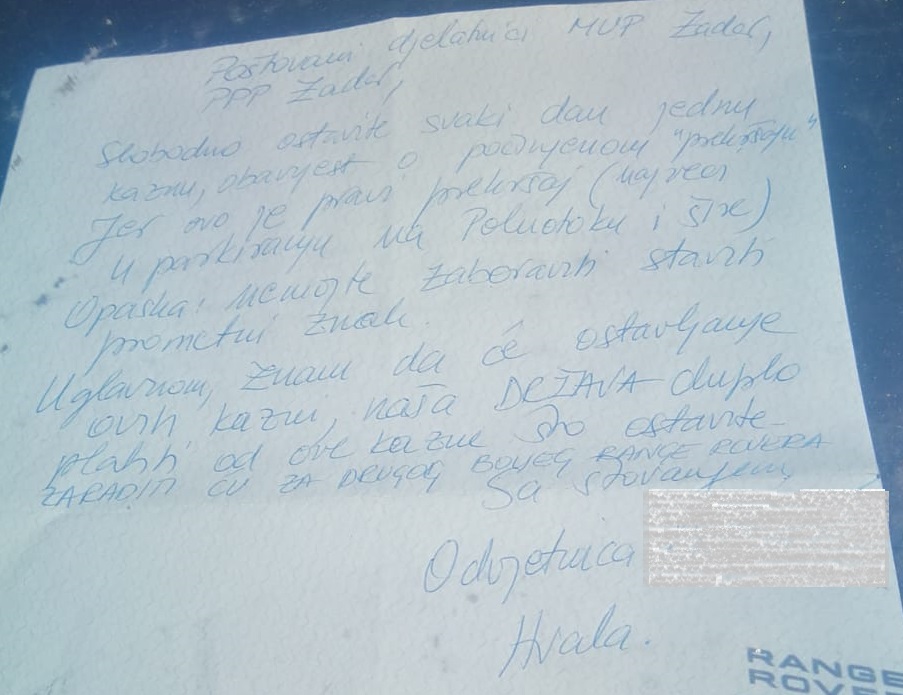 Poštovani djelatnici MUP Zadar,
PPP Zadar,
Slobodno ostavite svaki dan jednu
kaznu, obavijest o počinjenom "prekršaju"
Jer ovo je pravi prekršaj (najveći
u parkiranju na Poluotoku i šire)
Opaska: nemojte zaboraviti staviti
prometni znak.
Uglavnom, znam da će ostavljanje
ovih kazni, naša DRŽAVA duplo
platiti od ove kazne što ostavite
ZARADITI ĆU ZA DRUGOG BOLJEG RANGE ROVERA
Sa štovanjem,
Odvjetnica
Hvala.
RANGE
ROV